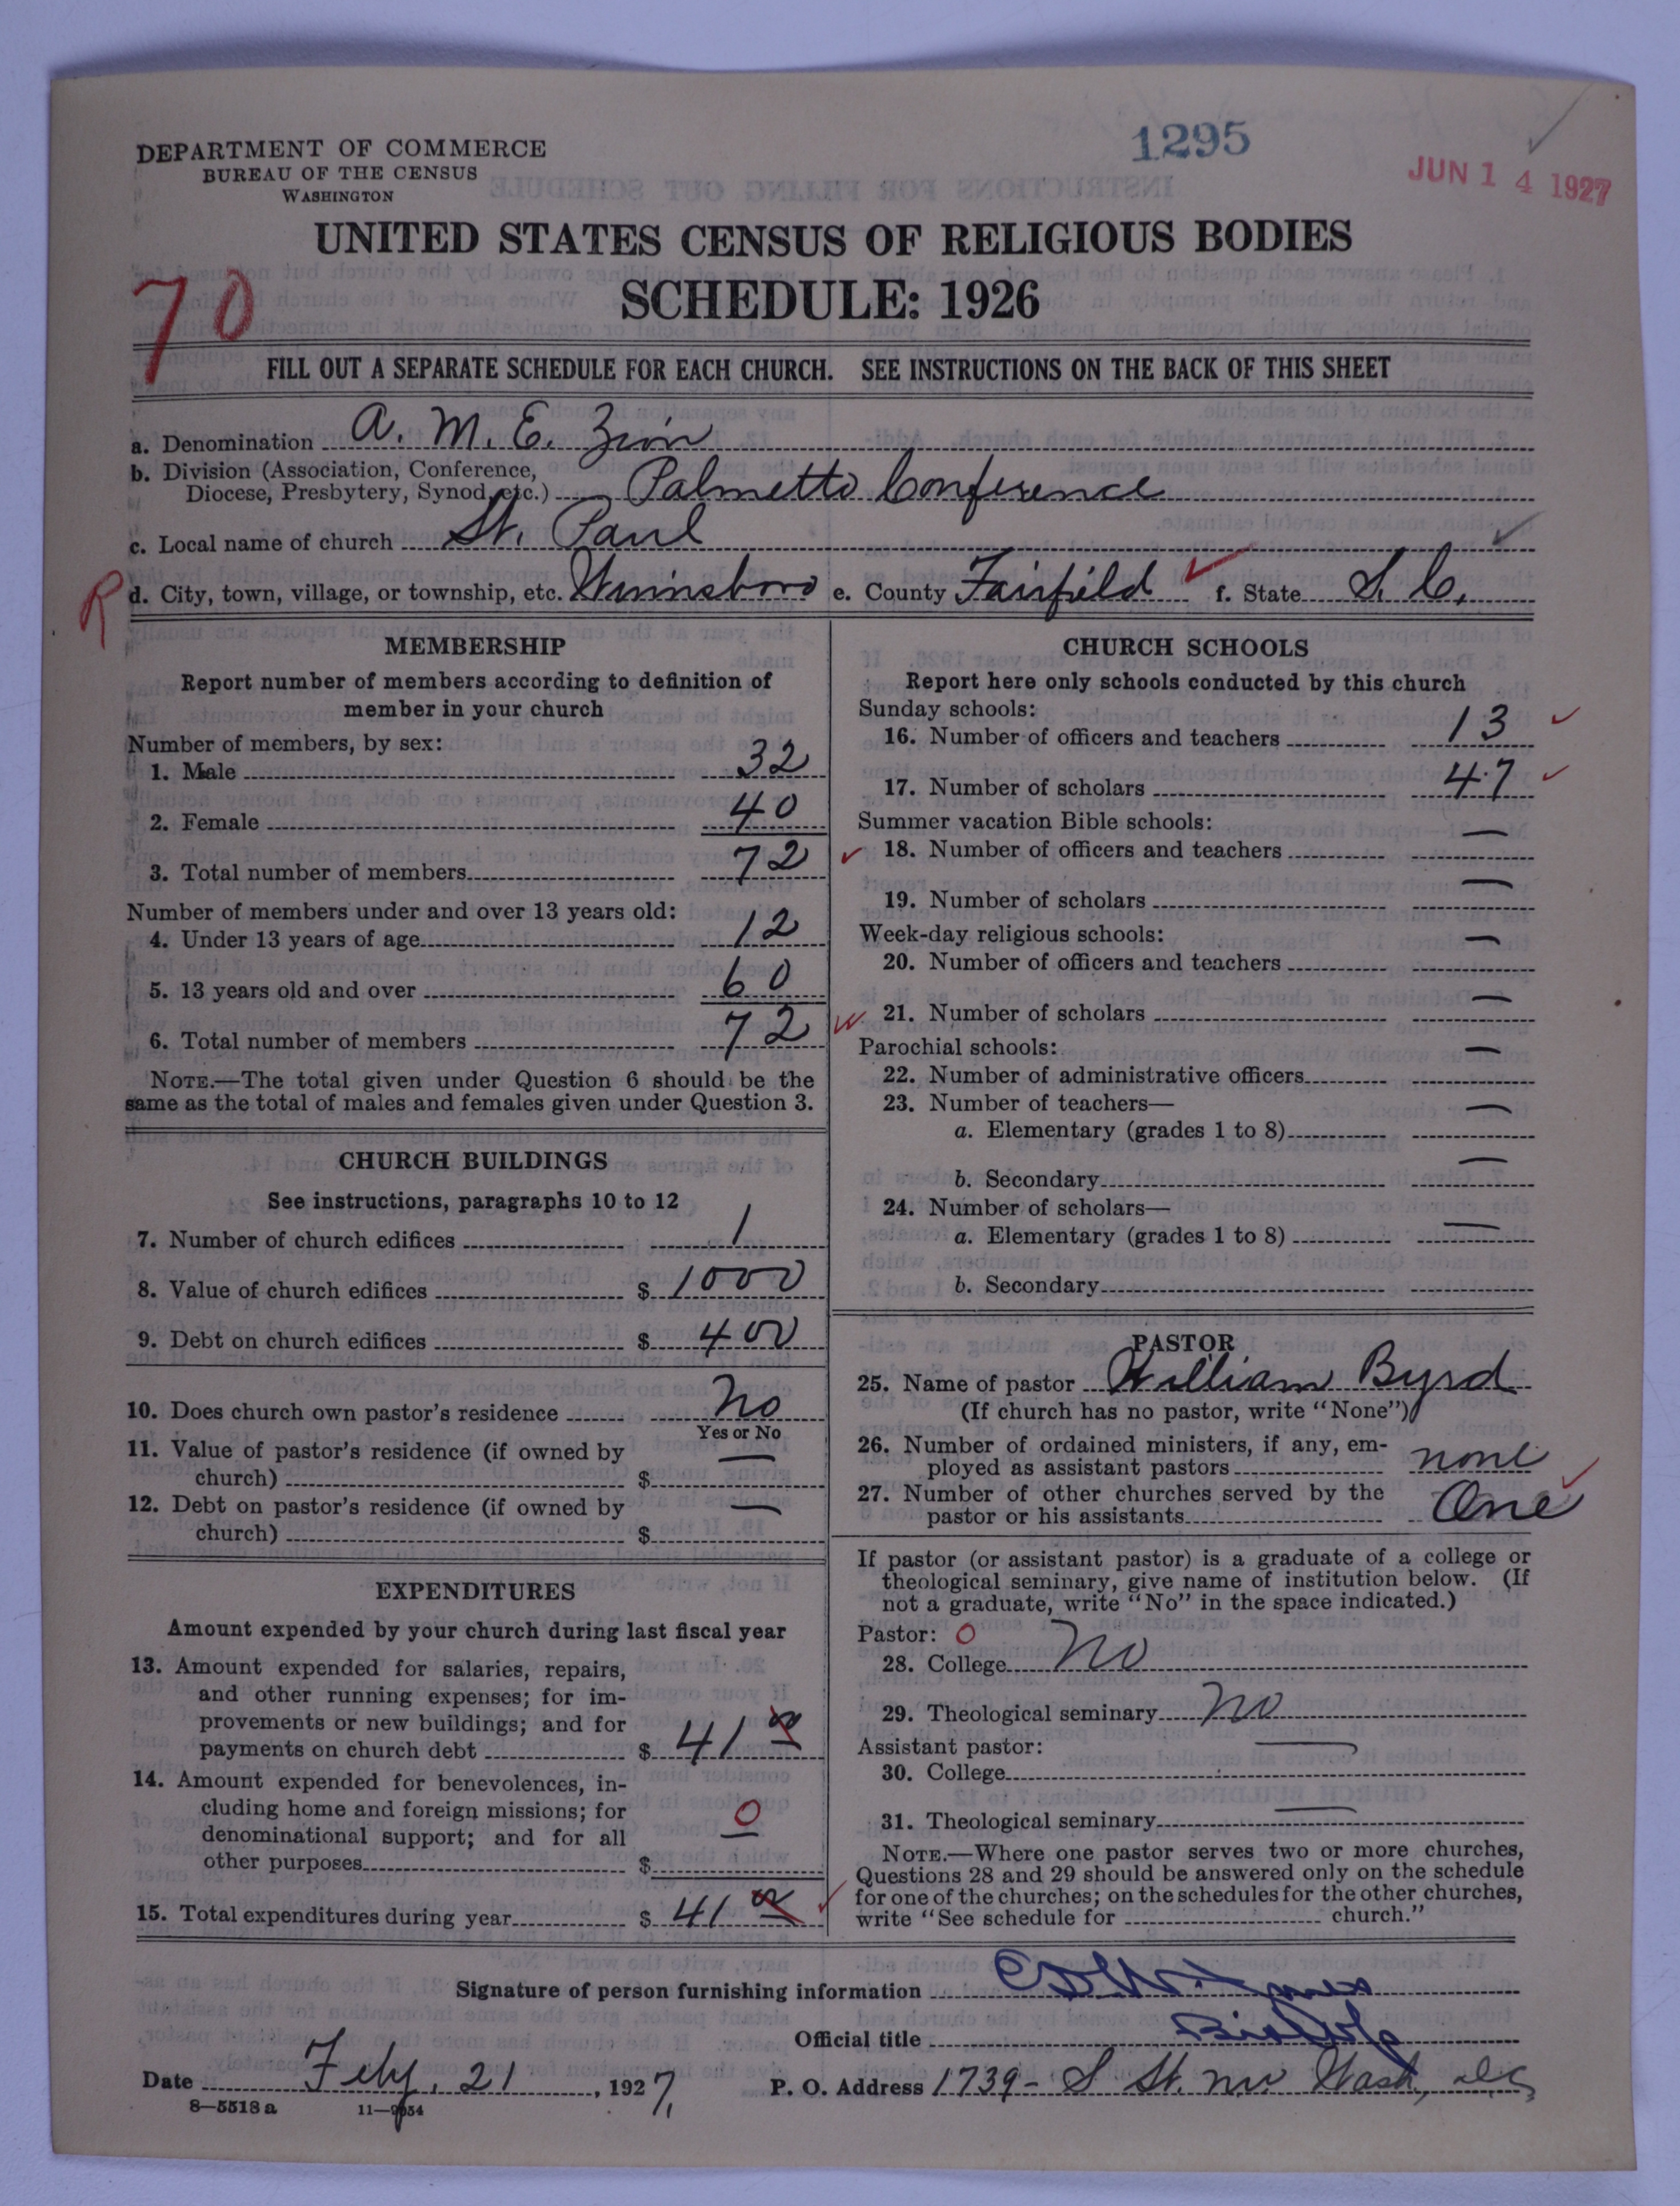 1295
JUN 14 1927
DEPARTMENT OF COMMERCE
BUREAU OF THE CENSUS
WASHINGTON
UNITED STATES CENSUS OF RELIGIOUS BODIES
SCHEDULE: 1926
70
FILL OUT A SEPARATE SCHEDULE FOR EACH CHURCH. SEE INSTRUCTIONS ON THE BACK OF THIS SHEET
a. Denomination A. M. E. Zion
b. Division (Association, Conference,
Diocese, Presbytery, Synod, etc.) Palmetto Conference
c. Local name of church St. Paul
R d. City, town, village, or township, etc. Winnsboro e. County Fairfield f. State S. C.
MEMBERSHIP
Report number of members according to definition of
member in your church
Number of members, by sex:
1. Male 32
2. Female 40
3. Total number of members 72
Number of members under and over 13 years old:
4. Under 13 years of age 12
5. 13 years old and over 60
6. Total number of members 72
NOTE.—The total given under Question 6 should be the
same as the total of males and females given under Question 3.
CHURCH BUILDINGS
See instructions, paragraphs 10 to 12
7. Number of church edifices 1
8. Value of church edifices $ 1000
9. Debt on church edifices $ 400
10. Does church own pastor's residence No
Yes or No
11. Value of pastor's residence (if owned by
church) $ —
12. Debt on pastor's residence (if owned by
church) $ —
EXPENDITURES
Amount expended by your church during last fiscal year
13. Amount expended for salaries, repairs,
and other running expenses; for im-
provements or new buildings; and for
payments on church debt $ 41 00
14. Amount expended for benevolences, in-
cluding home and foreign missions; for
denominational support; and for all
other purposes $ 0
15. Total expenditures during year $ 41 00
CHURCH SCHOOLS
Report here only schools conducted by this church
Sunday schools:
16. Number of officers and teachers 13
17. Number of scholars 47
Summer vacation Bible schools:
18. Number of officers and teachers —
19. Number of scholars —
Week-day religious schools:
20. Number of officers and teachers —
21. Number of scholars —
Parochial schools:
22. Number of administrative officers —
23. Number of teachers—
a. Elementary (grades 1 to 8) —
b. Secondary —
24. Number of scholars—
a. Elementary (grades 1 to 8) —
b. Secondary
PASTOR
25. Name of pastor William Byrd
(If church has no pastor, write "None")
26. Number of ordained ministers, if any, em-
ployed as assistant pastors none
27. Number of other churches served by the
pastor or his assistants One
If pastor (or assistant pastor) is a graduate of a college or
theological seminary, give name of institution below. (If
not a graduate, write "No" in the space indicated.)
Pastor: 0
28. College No
29. Theological seminary No
Assistant pastor: —
30. College
31. Theological seminary —
NOTE.—Where one pastor serves two or more churches,
Questions 28 and 29 should be answered only on the schedule
for one of the churches; on the schedules for the other churches,
write "See schedule for church."
Signature of person furnishing information
Official title Bishop
Date Feby. 21, 1927. P. O. Address 1739 - S St. NW Wash, DC
8—5518 a 11—9054